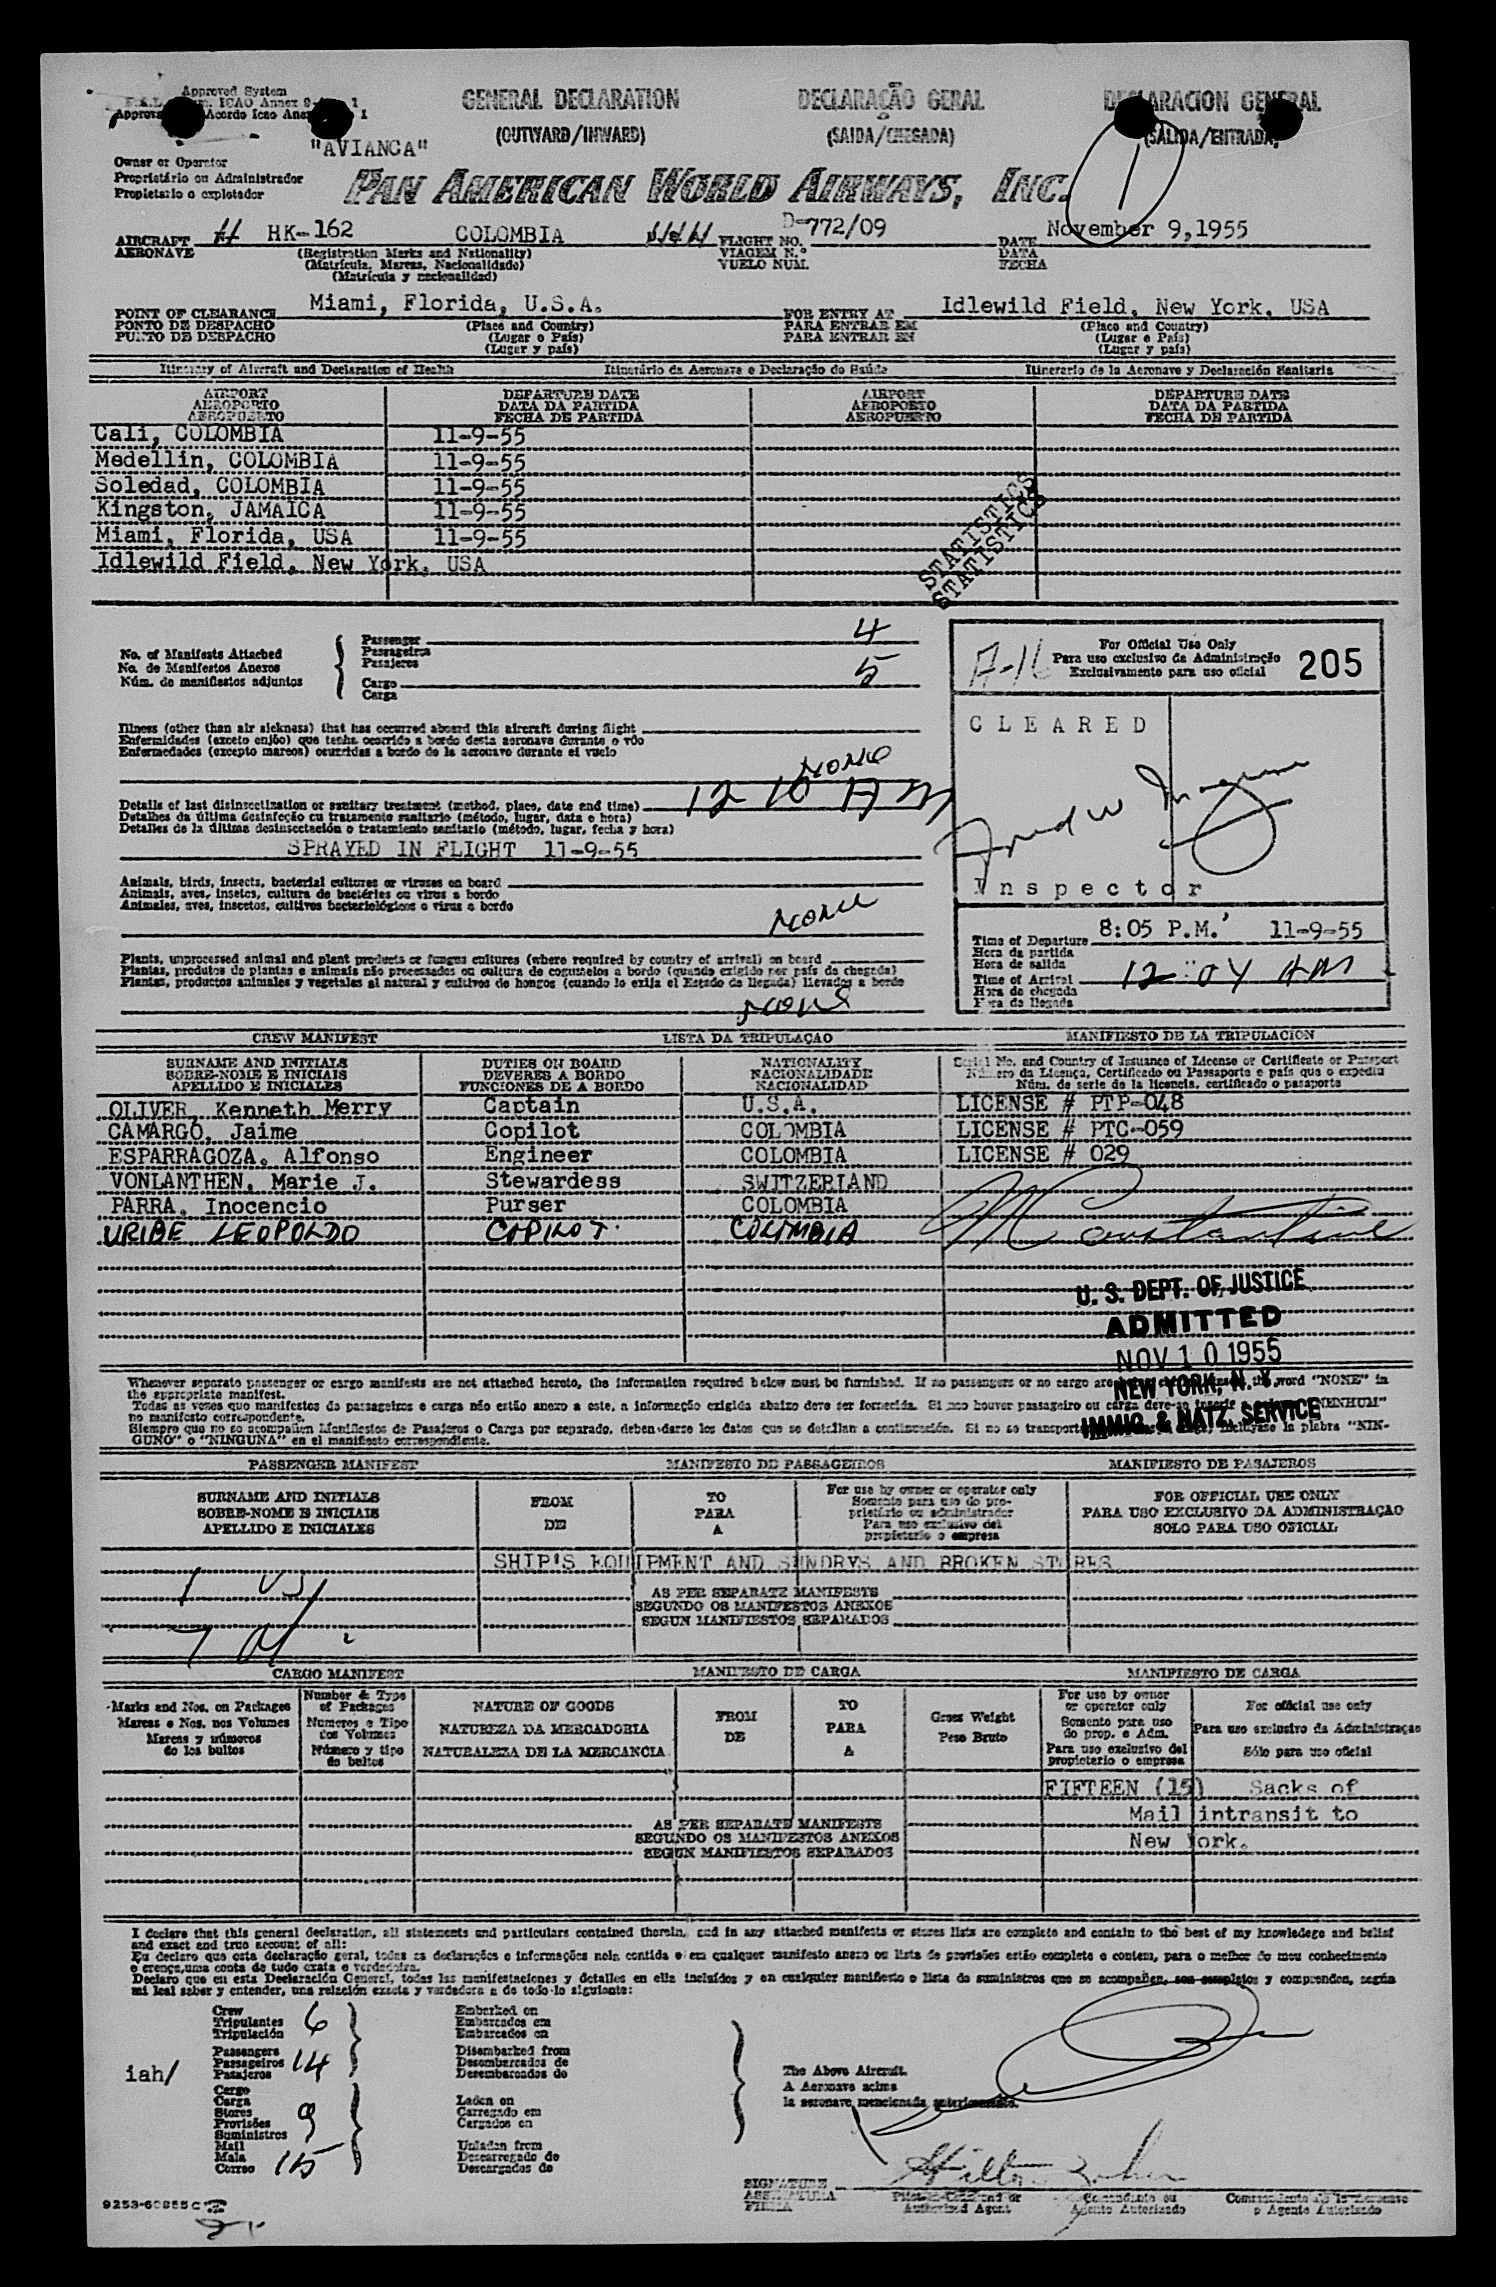 Approved System
GENERAL DECLARATION DECLARAÇÃO GERAL DECLARACION GENERAL
(OUTWARD/INWARD) (SAIDA/CHEGADA) (SALIDA/ENTRADA)
"AVIANCA"
Owner or Operator
Proprietário ou Administrador
Propietario o explotador
PAN AMERICAN WORLD AIRWAYS, INC.
1
AIRCRAFT HK-162 COLOMBIA FLIGHT NO. D-772/09 DATE November 9,1955
AERONAVE (Registration Marks and Nationality) VIAGEM N.º DATA
(Matrícula, Marcas, Nacionalidade) VUELO NUM. FECHA
(Matrícula y nacionalidad)
POINT OF CLEARANCE Miami, Florida, U.S.A. FOR ENTRY AT Idlewild Field, New York, USA
PONTO DE DESPACHO (Place and Country) PARA ENTRAR EM (Place and Country)
PUNTO DE DESPACHO (Lugar o País) PARA ENTRAR EN (Lugar e País)
(Lugar y país) (Lugar y país)
Itinerary of Aircraft and Declaration of Health Itinerário da Aeronave e Declaração de Saúde Itinerario de la Aeronave y Declaración Sanitaria
AIRPORT DEPARTURE DATE AIRPORT DEPARTURE DATE
AEROPORTO DATA DA PARTIDA AEROPORTO DATA DA PARTIDA
AEROPUERTO FECHA DE PARTIDA AEROPUERTO FECHA DE PARTIDA
Cali, COLOMBIA 11-9-55
Medellin, COLOMBIA 11-9-55
Soledad, COLOMBIA 11-9-55
Kingston, JAMAICA 11-9-55
Miami, Florida, USA 11-9-55
Idlewild Field, New York, USA
STATISTICS
STATISTICS
No. of Manifests Attached
No. de Manifestos Anexos
Núm. de manifiestos adjuntos
Passenger 4
Passageiros
Pasajeros
Cargo 5
Carga
A-16
For Official Use Only
Para uso exclusivo da Administração
Exclusivamente para uso oficial
205
Illness (other than air sickness) that has occurred aboard this aircraft during flight
Enfermidades (exceto enjôo) que tenha ocorrido a bordo desta aeronave durante o vôo
Enfermedades (excepto mareos) ocurridas a bordo de la aeronave durante el vuelo
None
CLEARED
Inspector
Details of last disinsectization or sanitary treatment (method, place, date and time) 12 10 AM
Detalhes da última desinfeção ou tratamento sanitario (método, lugar, data e hora)
Detalles de la última desinsectación o tratamiento sanitario (método, lugar, fecha y hora)
SPRAYED IN FLIGHT 11-9-55
Animals, birds, insects, bacterial cultures or viruses on board
Animais, aves, insetos, cultura de bactéries ou virus a bordo
Animales, aves, insectos, cultivos bacteriológicos o virus a bordo
None
Time of Departure 8:05 P.M. 11-9-55
Hora da partida
Hora de salida
Time of Arrival 12 04 AM
Hora de chegada
Hora de llegada
Plants, unprocessed animal and plant products or fungus cultures (where required by country of arrival) on board
Plantas, produtos de plantas e animais não processados ou cultura de cogumelos a bordo (quando exigido por país da chegada)
Plantas, productos animales y vegetales al natural y cultivos de hongos (cuando lo exija el Estado de llegada) llevados a bordo
None
CREW MANIFEST LISTA DA TRIPULAÇAO MANIFIESTO DE LA TRIPULACION
SURNAME AND INITIALS DUTIES ON BOARD NATIONALITY Serial No. and Country of Issuance of License or Certificate or Passport
SOBRE-NOME E INICIAIS DEVERES A BORDO NACIONALIDADE Número da Licença, Certificado ou Passaporte e país que o expediu
APELLIDO E INICIALES FUNCIONES DE A BORDO NACIONALIDAD Núm. de serie de la licencia, certificado o pasaporte
OLIVER, Kenneth Merry Captain U.S.A. LICENSE # PTP-048
CAMARGO, Jaime Copilot COLOMBIA LICENSE # PTC-059
ESPARRAGOZA, Alfonso Engineer COLOMBIA LICENSE # 029
VONLANTHEN, Marie J. Stewardess SWITZERLAND
PARRA, Inocencio Purser COLOMBIA
URIBE LEOPOLDO COPILOT COLOMBIA
U. S. DEPT. OF JUSTICE
ADMITTED
NOV 10 1955
NEW YORK, N. Y.
IMMIG. & NATZ. SERVICE
Whenever separate passenger or cargo manifests are not attached hereto, the information required below must be furnished. If no passengers or no cargo are the word "NONE" in
the appropriate manifest.
Todas as vezes que manifestos de passageiros e carga não estão anexo a este, a informação exigida abaixo deve ser fornecida. Si não houver passageiro ou carga deve-se inserir "NENHUM"
no manifesto correspondente.
Siempre que no se acompañen Manifiestos de Pasajeros o Carga por separado, deben darse los datos que se detallan a continuación. Si no se transporta incluyase la plabra "NIN-
GUNO" o "NINGUNA" en el manifiesto correspondiente.
PASSENGER MANIFEST MANIFESTO DE PASSAGEIROS MANIFIESTO DE PASAJEROS
SURNAME AND INITIALS FROM TO For use by owner or operator only FOR OFFICIAL USE ONLY
SOBRE-NOME E INICIAIS DE PARA Somente para uso do proprietário ou administrador PARA USO EXCLUSIVO DA ADMINISTRAÇAO
APELLIDO E INICIALES A Para uso exclusivo del propietario o empresa SOLO PARA USO OFICIAL
SHIP'S EQUIPMENT AND SUNDRYS AND BROKEN STORES
AS PER SEPARATE MANIFESTS
SEGUNDO OS MANIFESTOS ANEXOS
SEGUN MANIFIESTOS SEPARADOS
CARGO MANIFEST MANIFESTO DE CARGA MANIFIESTO DE CARGA
Marks and Nos. on Packages Number & Type of Packages NATURE OF GOODS FROM TO Gross Weight For use by owner or operator only For official use only
Marcas e Nos. nos Volumes Numeros e Tipo dos Volumes NATUREZA DA MERCADORIA DE PARA Peso Bruto Somente para uso do prop. e Adm. Para uso exclusivo da Administraçao
Marcas y números de los bultos Número y tipo de bultos NATURALEZA DE LA MERCANCIA A Para uso exclusivo del propietario o empresa Sólo para uso oficial
FIFTEEN (15) Sacks of
Mail intransit to
New York.
AS PER SEPARATE MANIFESTS
SEGUNDO OS MANIFESTOS ANEXOS
SEGUN MANIFIESTOS SEPARADOS
I declare that this general declaration, all statements and particulars contained therein, and in any attached manifests or stores lists are complete and contain to the best of my knowledege and belief
and exact and true account of all:
Eu declaro que esta declaração geral, todas as declarações e informações nela contida e em qualquer manifesto anexo ou lista de provisões estão completo e contem, para o melhor do meu conhecimento
e crença, uma conta de tudo exata e verdadeira.
Declaro que en esta Declaración General, todas las manifestaciones y detalles en ella incluidos y en cualquier manifiesto o lista de suministros que se acompañen, son completos y comprenden, según
mi leal saber y entender, una relación exacta y verdadera a de todo lo siguiente:
Crew
Tripulantes 6
Tripulación
Embarked on
Embarcados em
Embarcados en
Passengers
Passageiros 14
Pasajeros
Disembarked from
Desembarcados de
Desembarcados de
iah/
Cargo
Carga
Stores
Provisões 9
Suministros
Mail
Mala 15
Correo
Laden on
Carregado em
Cargados en
Unladen from
Descarregado de
Descargados de
The Above Aircraft.
A Aeronave acima
la aeronave mencionada anteriormente.
SIGNATURE
ASSINATURA
FIRMA
Authorized Agent Agente Autorizado o Agente Autorizado